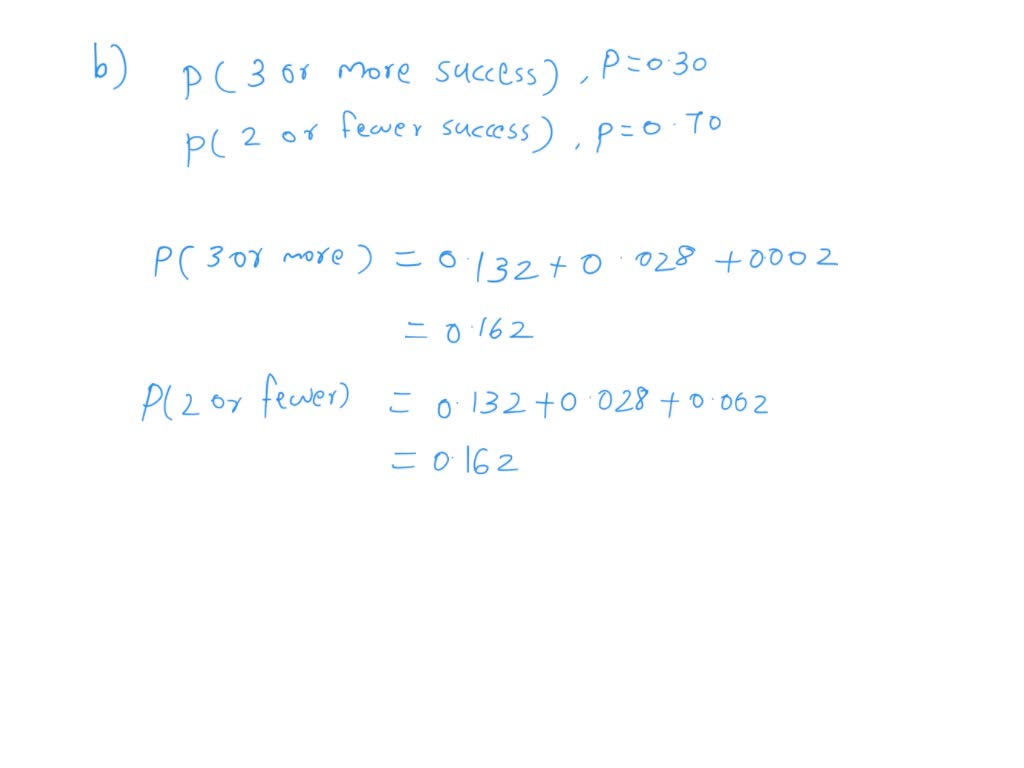 b) P(3 or more success), P=0.30
P(2 or fewer success), P=0.70
P(3 or more) = 0.132+0.028+0002
= 0.162
P(2 or fewer) = 0.132+0.028+0.002
= 0.162